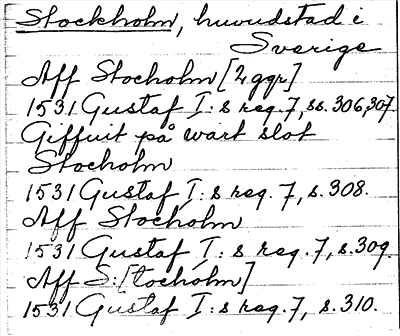 Stockholm, huvudstad i
Sverige
Aff Stocholm [2 ggr]
1531 Gustaf I:s reg. 7, ss. 306,307.
Giffuit på wart slot
Stocholm
1531 Gustaf I:s reg. 7, s. 308.
Aff Stocholm
1531 Gustaf I:s reg. 7, s. 309.
Aff S:[tocholm]
1531 Gustaf I:s reg. 7, s. 310.